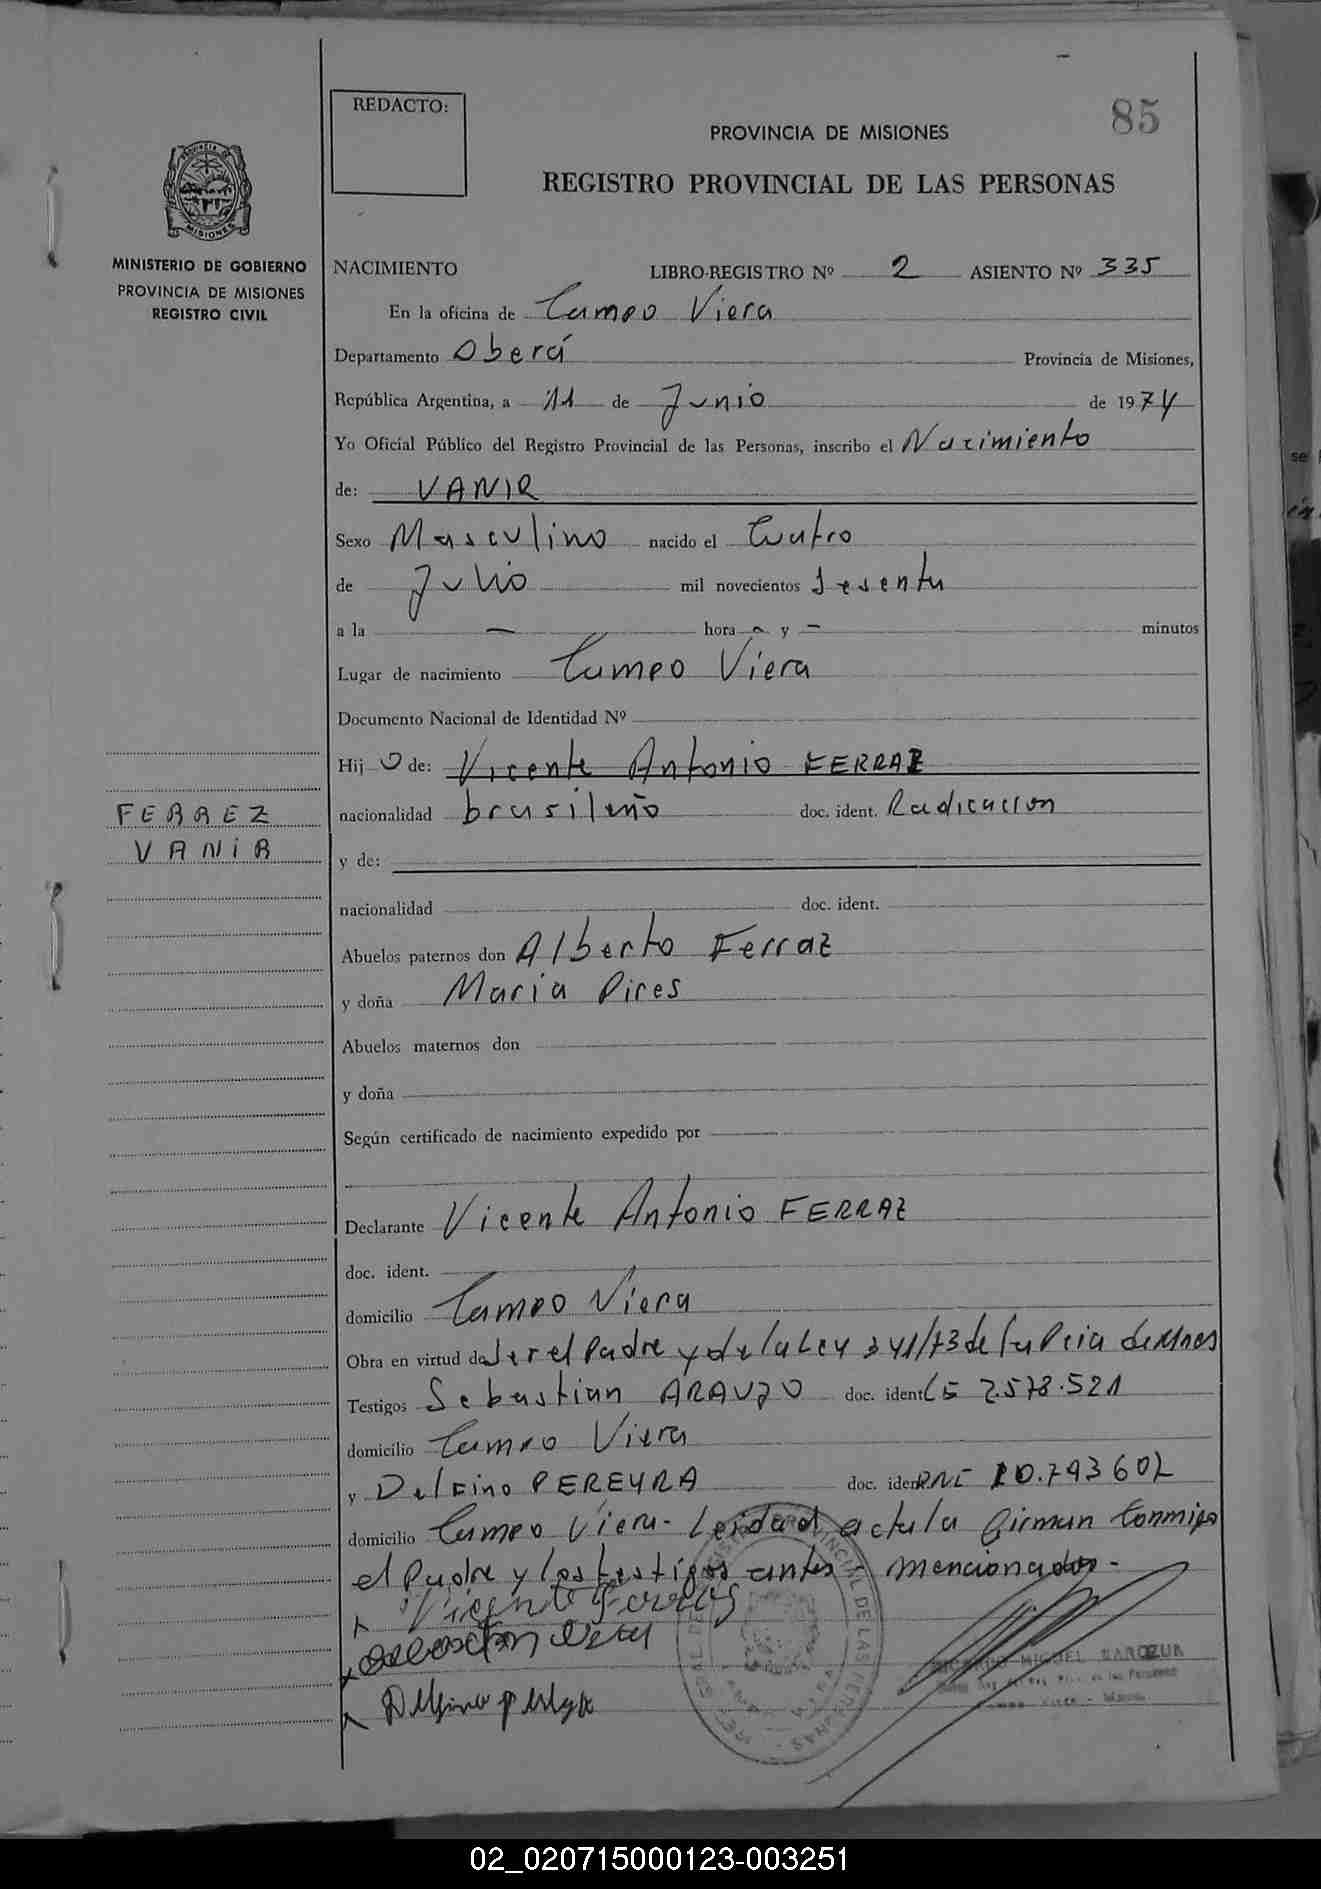 85
REDACTO:
PROVINCIA DE MISIONES
REGISTRO PROVINCIAL DE LAS PERSONAS
PROVINCIA DE
MISIONES
MINISTERIO DE GOBIERNO
PROVINCIA DE MISIONES
REGISTRO CIVIL
NACIMIENTO LIBRO-REGISTRO Nº 2 ASIENTO Nº 335
En la oficina de Campo Viera
Departamento Oberá Provincia de Misiones,
República Argentina, a 11 de Junio de 1974
Yo Oficial Público del Registro Provincial de las Personas, inscribo el Nacimiento
de: VANIR
Sexo Masculino nacido el Cuatro
de Julio mil novecientos sesenta
a la — hora - y - minutos
Lugar de nacimiento Campo Viera
Documento Nacional de Identidad Nº
Hij o de: Vicente Antonio FERRAZ
FERREZ
VANIR
nacionalidad brasileño doc. ident. Radicacion
y de:
nacionalidad doc. ident.
Abuelos paternos don Alberto Ferraz
y doña Maria Pires
Abuelos maternos don
y doña
Según certificado de nacimiento expedido por
Declarante Vicente Antonio FERRAZ
doc. ident.
domicilio Campo Viera
Obra en virtud de ser el Padre y de la Ley 341/73 de la Pcia de Mnes
Testigos Sebastian ARAUJO doc. ident CE 2.578.521
domicilio Campo Viera
y Delfino PEREYRA doc. iden DNI 10.793602
domicilio Campo Viera- Leida el acta la firman conmigo
el Padre y los testigos antes mencionados -
Vicente Ferras
MIGUEL
02_020715000123-003251